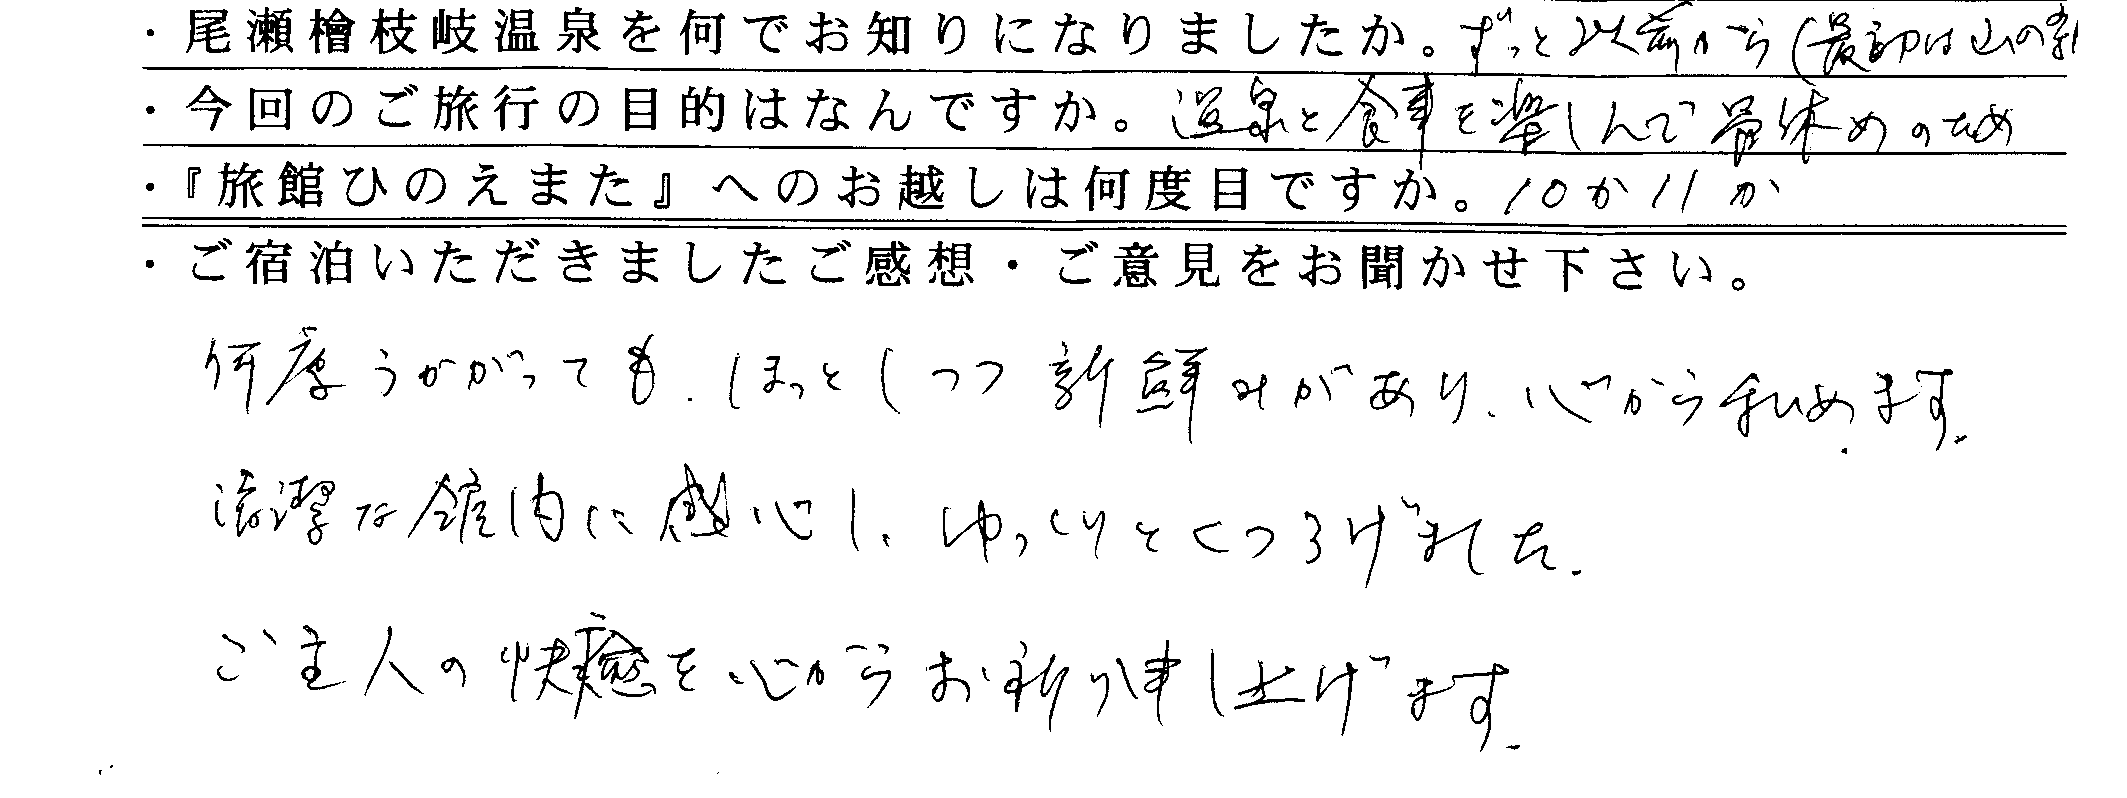 ・尾瀬檜枝岐温泉を何でお知りになりましたか。ずっと以前から(最初は山の
・今回のご旅行の目的はなんですか。温泉と食事を楽しんで骨休めのため
・『旅館ひのえまた』へのお越しは何度目ですか。10か11か
・ご宿泊いただきましたご感想・ご意見をお聞かせ下さい。
何度うかがっても、ほっとしつつ新鮮みがあり、心から和めます。
清潔な館内に感心し、ゆっくりとくつろげました。
ご主人の快癒を心からお祈り申し上げます。